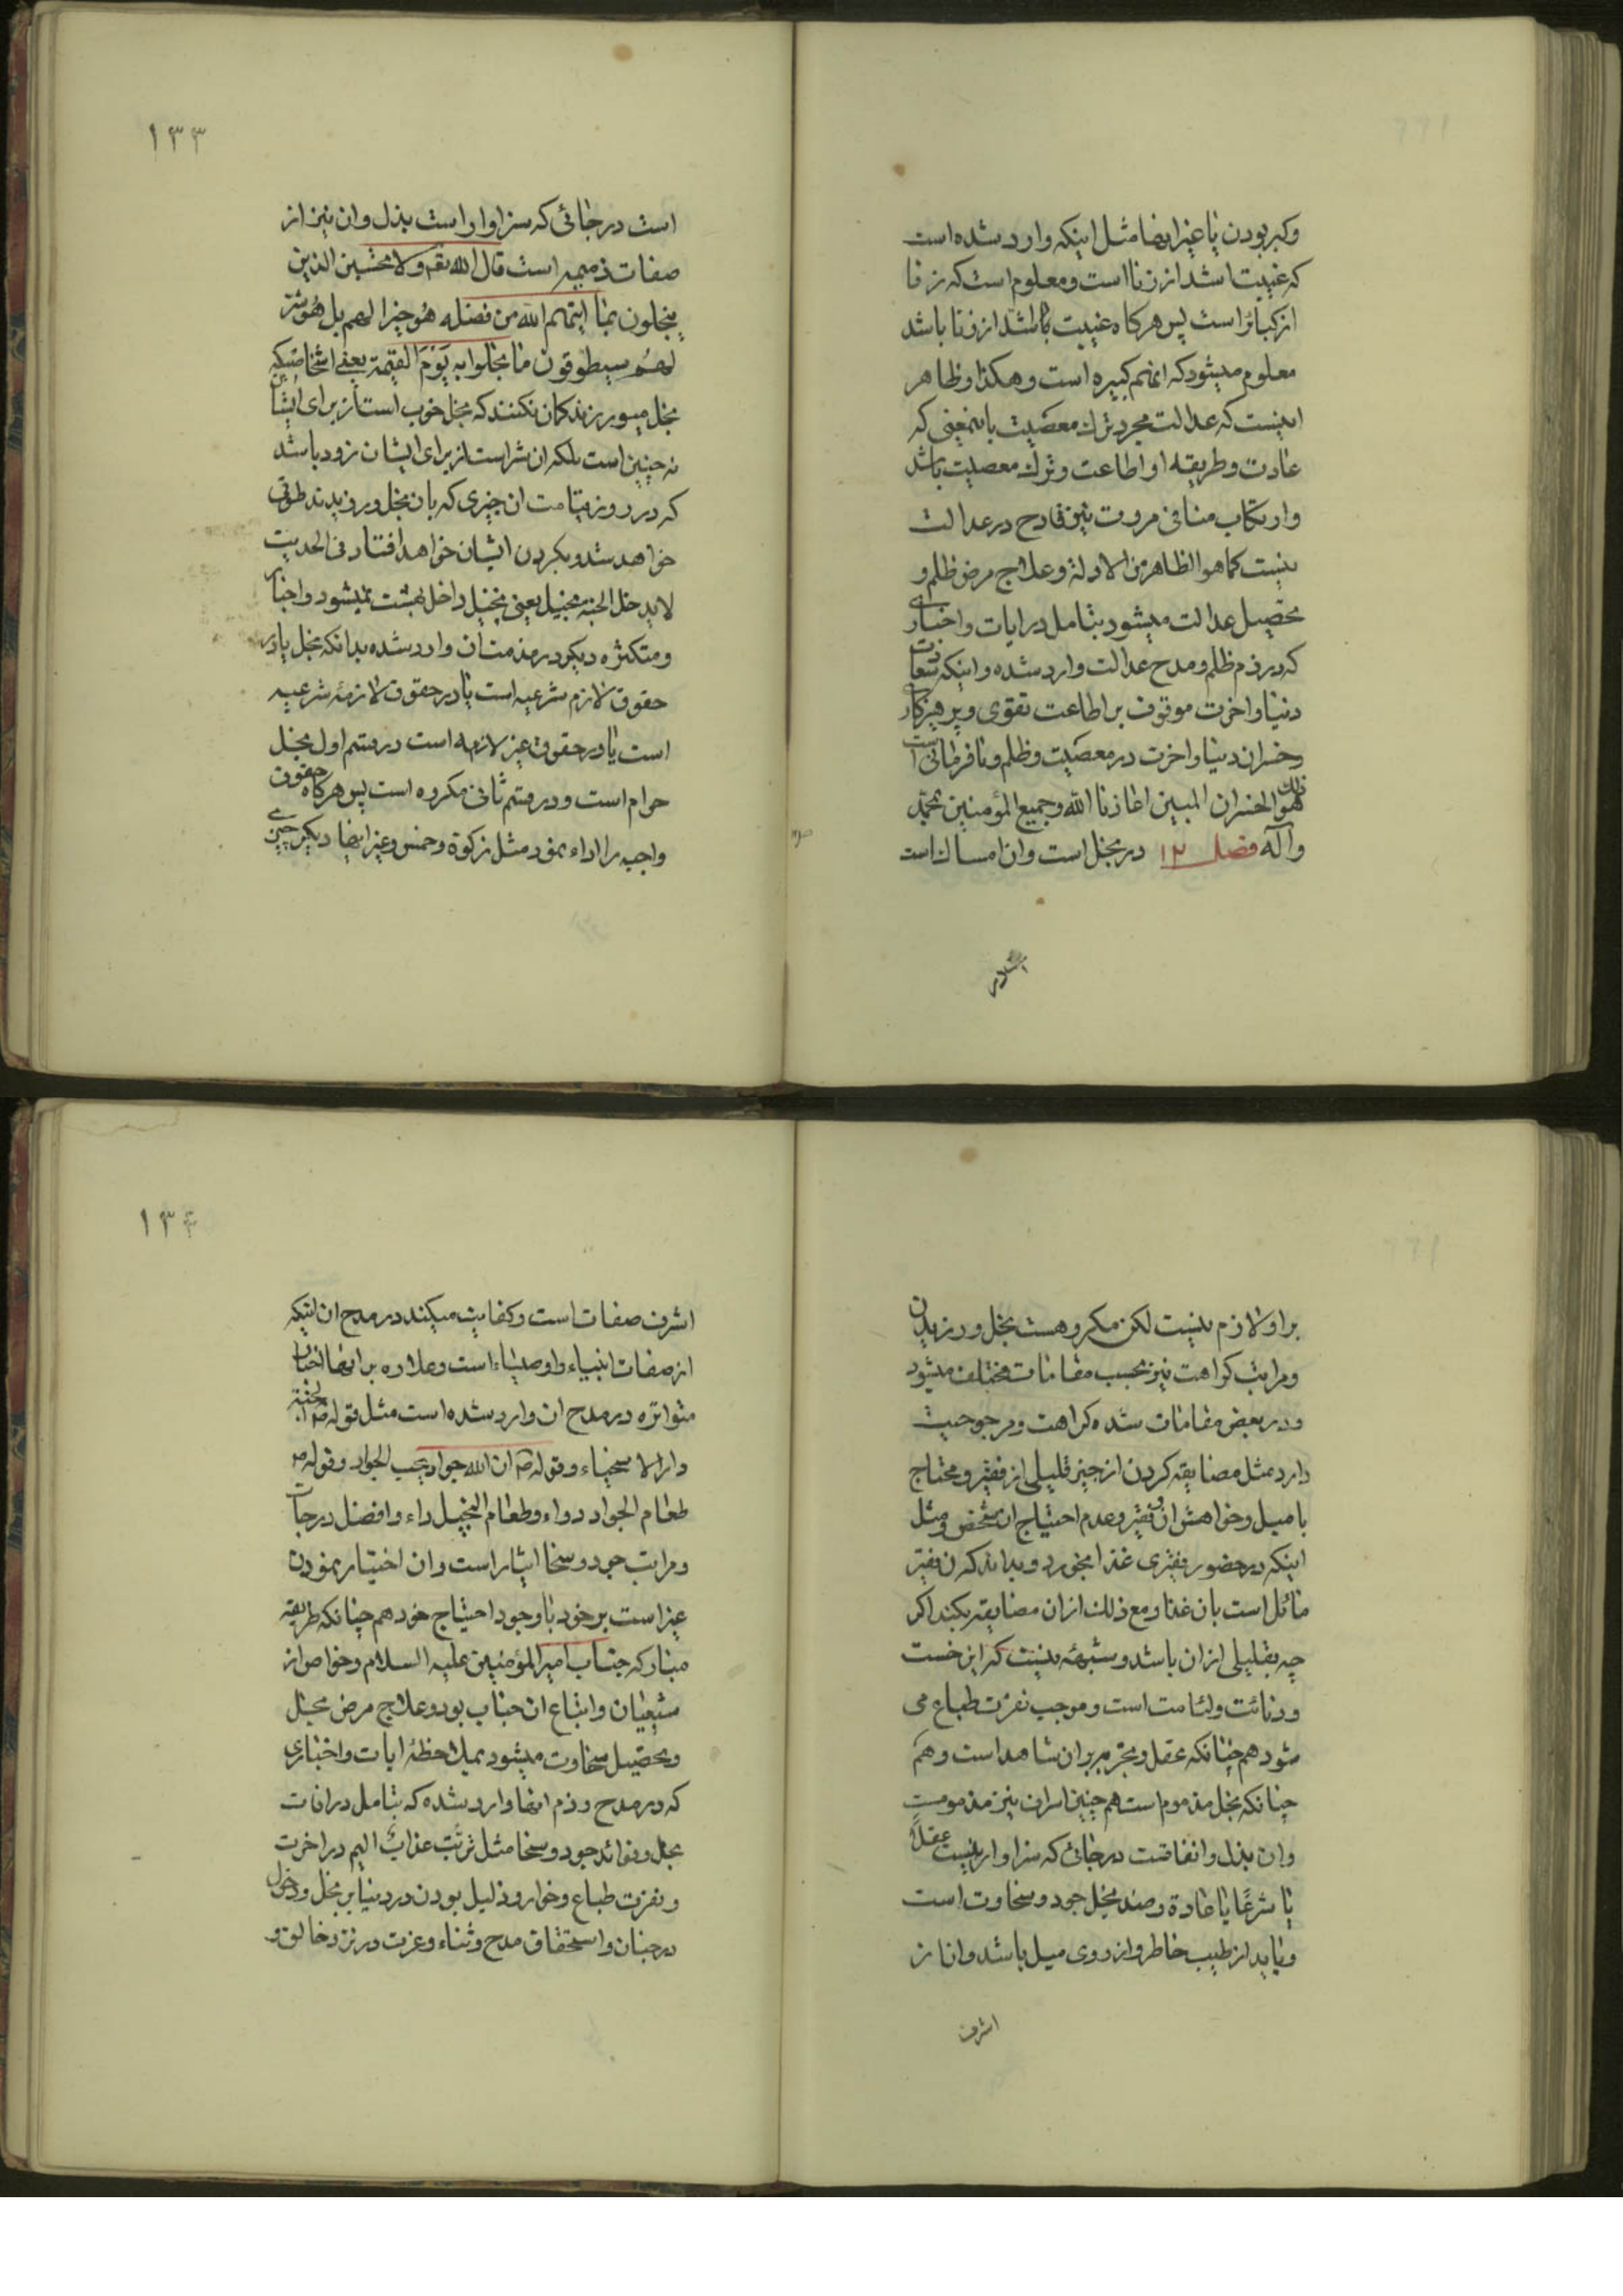 وکبر بودن یا غیر اینها مثل اینکه وارد شده است
که غیبت اشد از زنا است و معلوم است که زنا
از کبائر است پس هرگاه غیبت اشد از زنا باشد
معلوم میشود که انهم کبیره است و هکذا و ظاهر
اینست که عدالت مجرد ترك معصیت باینمعنی که
عادت و طریقه او اطاعت و ترك معصیت باشد
و ارتکاب منافی مروت نیز قادح در عدالت
نیست کما هو الظاهر من الادلة و علاج مرض ظلم و
تحصیل عدالت میشود بتامل در ایات و اخباری
که در ذم ظلم و مدح عدالت وارد شده و اینکه سعادت
دنیا و اخرت موقوف بر اطاعت تقوی و پرهیزکاری
و خسران دنیا و اخرت در معصیت و ظلم و نافرمانی است
ذلك هو الخسران المبین اعاذنا الله و جمیع المؤمنین بمحمد
وآله فصل ۱۲ در بخل است و ان امساك است
۱۳۳
است در جائی که سزاوار است بذل و ان نیز از
صفات ذمیمه است قال الله تعه ولا تحسبن الذین
یبخلون بما اتیهم الله من فضله هو خیرا لهم بل هو شر
لهم سیطوقون ما بخلوا به یوم القیمة یعنی اشخاصیکه
بخل میورزند کمان نکنند که بخل خوب است از برای ایشان
نه چنین است بلکه ان شر است از برای ایشان زود باشد
که در روز قیامت ان چیزی که بان بخل ورزیدند طوقی
خواهد شد و بکردن ایشان خواهد افتاد فی الحدیث
لا یدخل الجنة بخیل یعنی بخیل داخل بهشت نمیشود و اخبار
متکثره دیکر در مذمت ان وارد شده بدانکه بخل یا در
حقوق لازم شرعیه است یا در حقوق لازمهٔ شرعیه
است یا در حقوق غیر لازمه است در قسم اول بخل
حرام است و در قسم ثانی مکروه است پس هرکاه حقوق
واجبه را اداء نمود مثل زکوة و خمس و غیر اینها دیکر چیزی
بر او لازم نیست لکن مکروهست بخل ورزیدن
و مراتب کراهت نیز بحسب مقامات مختلف میشود
و در بعض مقامات شده کراهت و مرجوحیت
دارد مثل مضایقه کردن از چیز قلیلی از فقیر و محتاج
با میل و خواهش ان فقیر و عدم احتیاج ان شخص و مثل
اینکه در حضور فقیری غذا بخورد و بداند که ن فقیر
مائل است بان غذا و مع ذلك از ان مضایقه بکند اکر
چه بقلیلی از ان باشد و شبهه نیست که این خست
و دنائت و لئامت است و موجب نفرت طباع می
شود هم چنانکه عقل و تجربه بر ان شاهد است و هم
چنانکه بخل مذموم است هم چنین اسراف نیز مذمومست
و ان بذل و انفاقست در جائی که سزاوار نیست عقلاً
یا شرعًا یا عادة و ضد بخل جود و سخاوت است
و باید از طیب خاطر و از روی میل باشد و ان از
اشرف
۱۳۴
اشرف صفات است و کفایت میکند در مدح ان اینکه
از صفات انبیاء و اوصیاء است و علاوه بر اینها اخبار
متواتره در مدح ان وارد شده است مثل قوله ص الجنة
دار الاسخیاء و قوله ص ان الله جواد یحب الجواد و قوله ص
طعام الجواد دواء و طعام البخیل داء و افضل درجات
و مراتب جود و سخا ایثار است و ان اختیار نمودن
غیر است بر خود با وجود احتیاج خود هم چنانکه طریقه
مبارکه جناب امیر المؤمنین علیه السلام و خواص از
شیعیان و اتباع ان جناب بود و علاج مرض بخل
و تحصیل سخاوت میشود بملاحظهٔ ایات و اخباری
که در مدح و ذم اینها وارد شده که بتامل در افات
بخل و فوائد جود و سخا مثل ترتب عذاب الیم در اخرت
و نفرت طباع و خوار و ذلیل بودن در دنیا بر بخل و دخول
در جنان و استحقاق مدح و ثناء و عزت در نزد خالق و